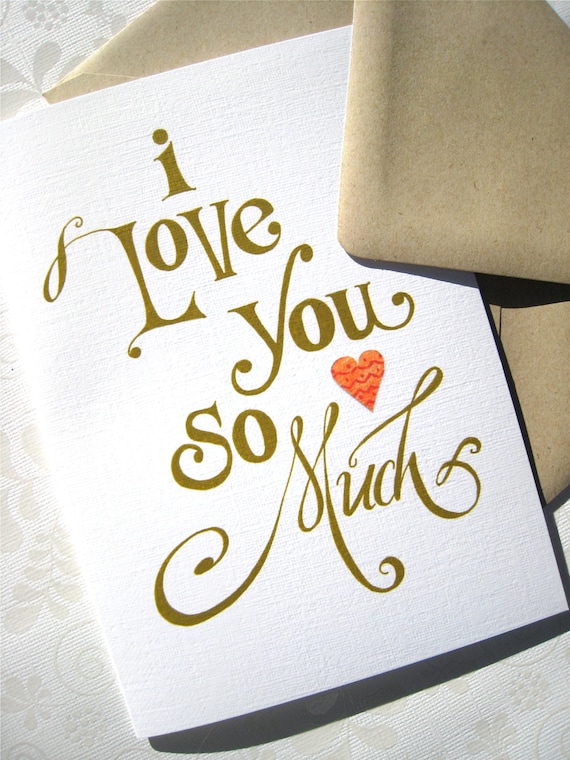 i
Love
you
so
Much